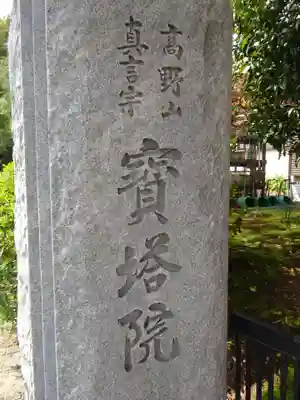 高野山
真言宗
寶塔院